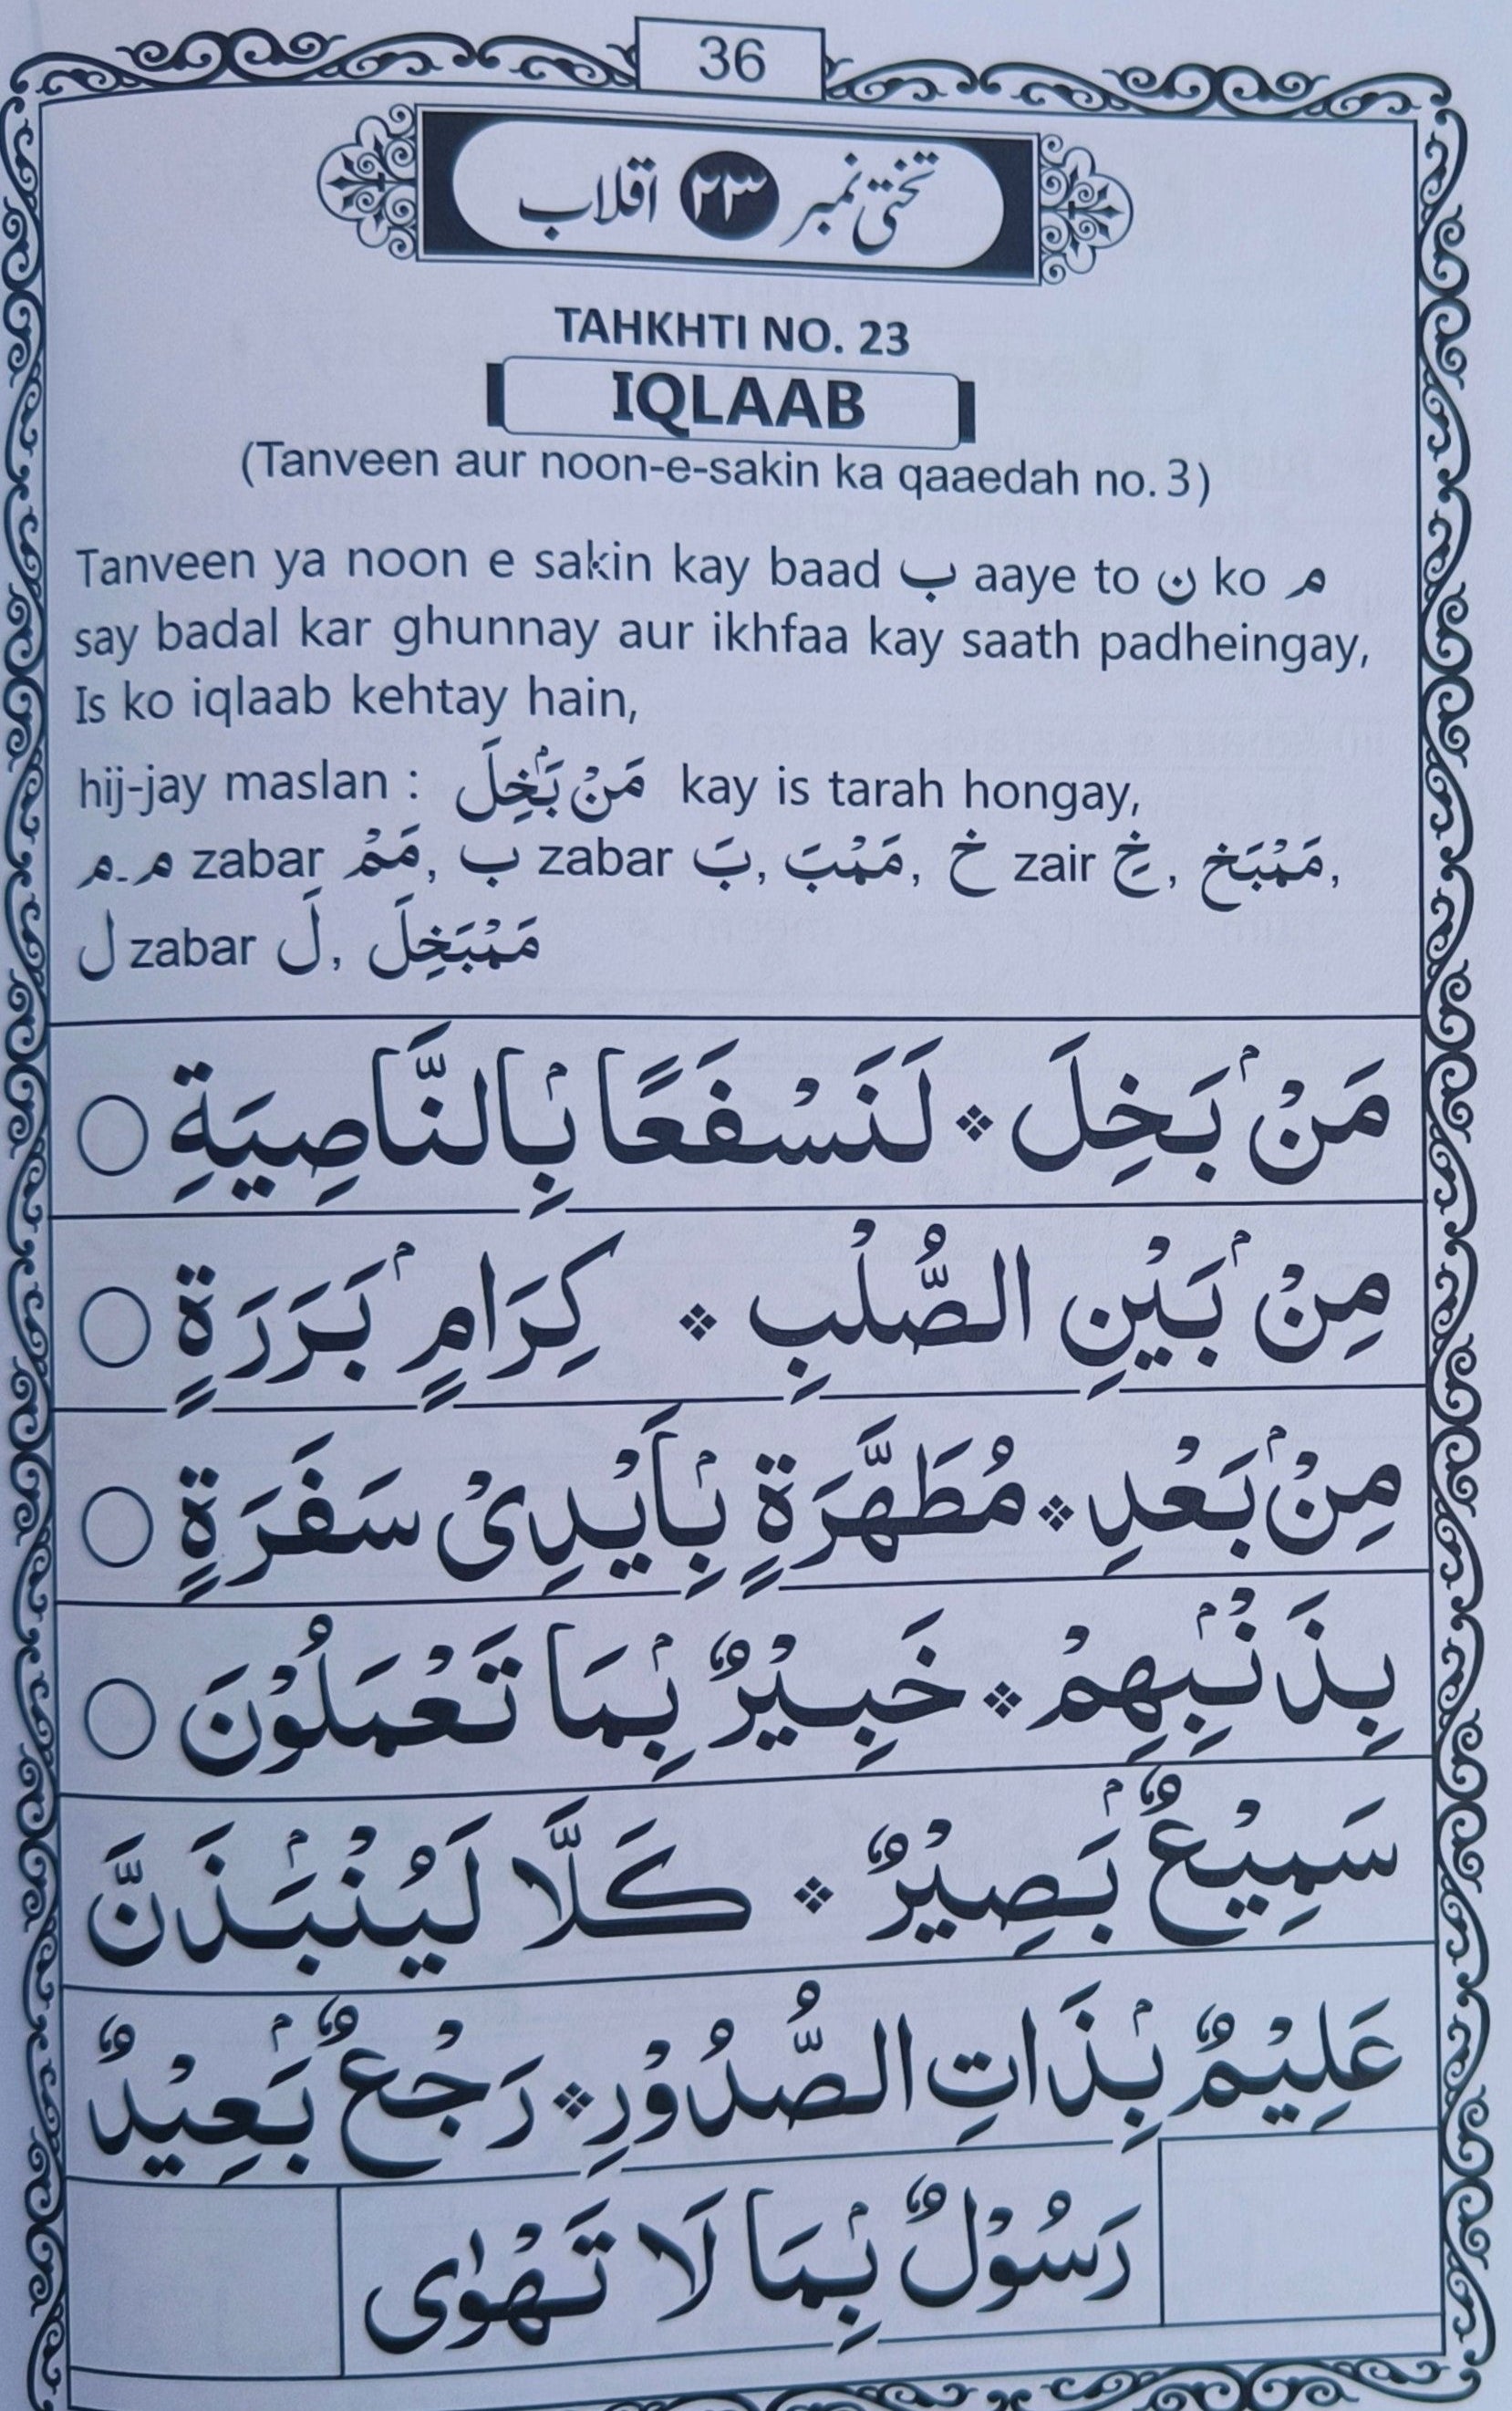 36
تختی نمبر ۲۳ اقلاب
TAHKHTI NO. 23
IQLAAB
(Tanveen aur noon-e-sakin ka qaaedah no.3)
Tanveen ya noon e sakin kay baad ب aaye to ن ko م
say badal kar ghunnay aur ikhfaa kay saath padheingay,
Is ko iqlaab kehtay hain,
hij-jay maslan : مَنْۢ بَخِلَ kay is tarah hongay,
م۔م zabar مَمْ, ب zabar بَ, مَمْبَ, خ zair خِ, مَمْبَخِ,
ل zabar لَ, مَمْبَخِلَ
مَنْۢ بَخِلَ ۞ لَنَسْفَعًۢا بِالنَّاصِيَةِ ○
مِنْۢ بَيْنِ الصُّلْبِ ۞ كِرَامٍۢ بَرَرَةٍ ○
مِنْۢ بَعْدِ ۞ مُطَهَّرَةٍۢ بِاَيْدِىْ سَفَرَةٍ ○
بِذَنْۢبِهِمْ ۞ خَبِيْرٌۢ بِمَا تَعْمَلُوْنَ ○
سَمِيْعٌۢ بَصِيْرٌ ۞ كَلَّا لَيُنْۢبَذَنَّ
عَلِيْمٌۢ بِذَاتِ الصُّدُوْرِ ۞ رَجْعٌۢ بَعِيْدٌ
رَسُوْلٌۢ بِمَا لَا تَهْوٰى